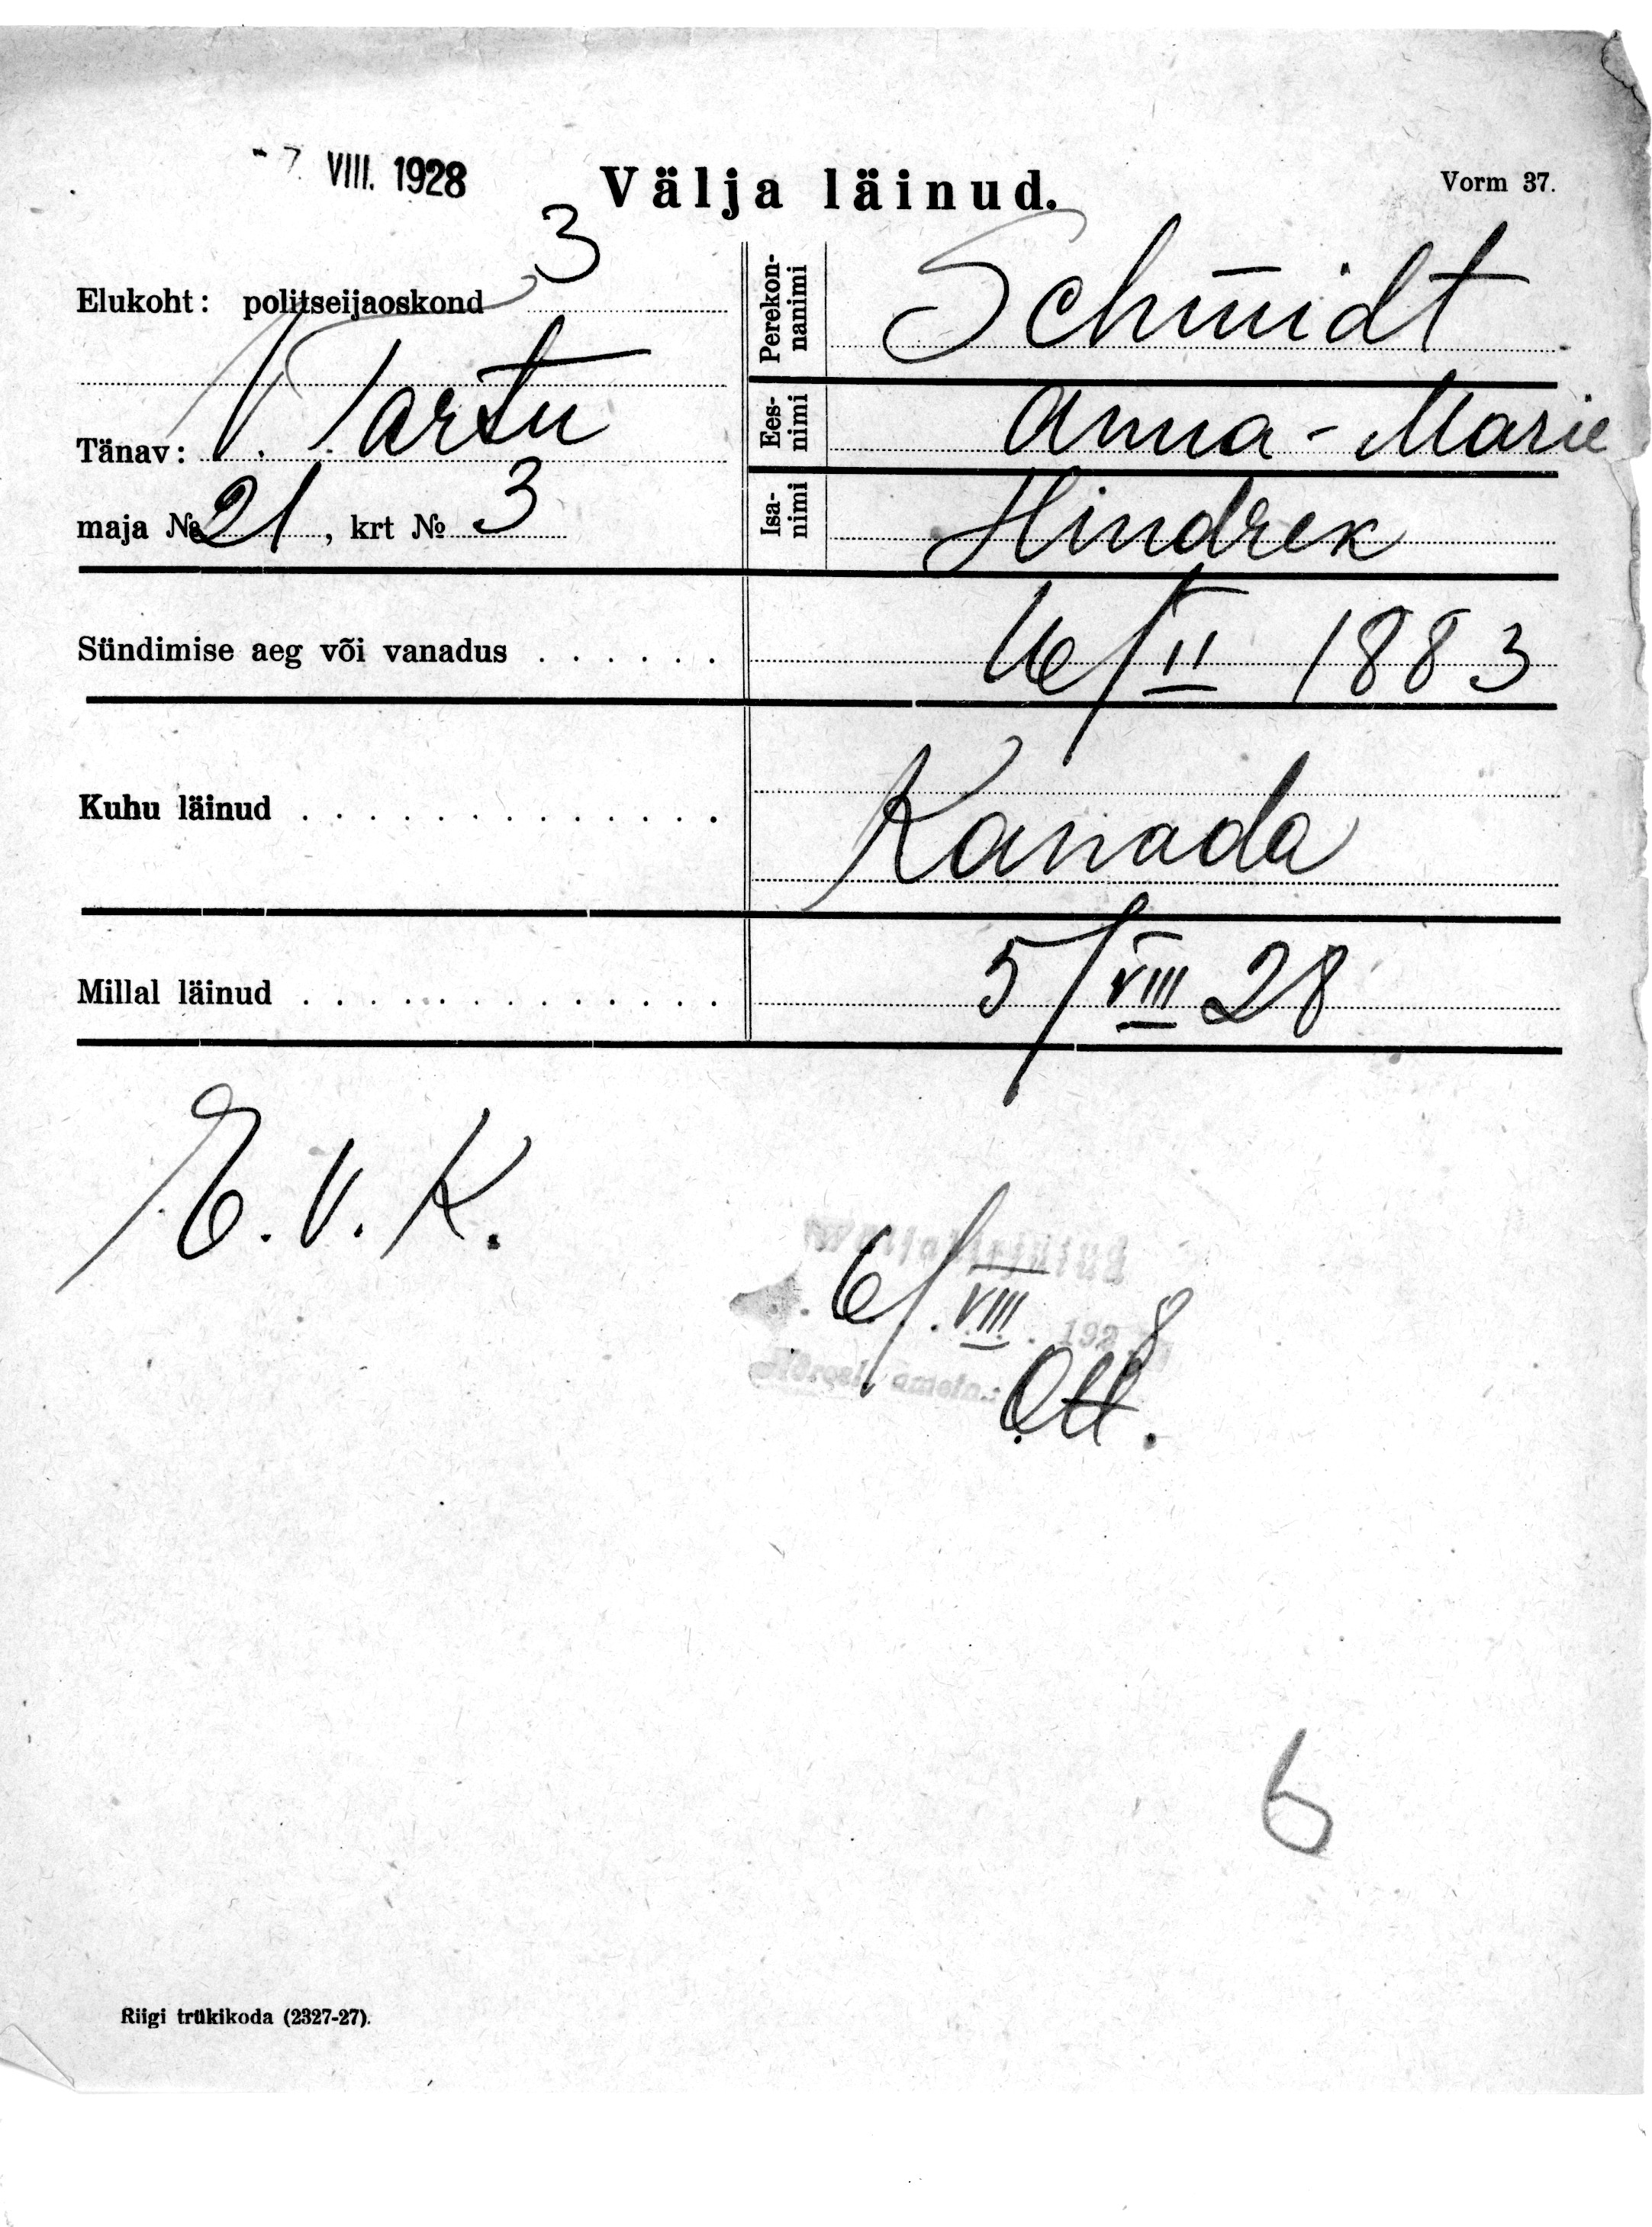 - 7. VIII. 1928
Välja läinud.
Vorm 37.
Elukoht: politseijaoskond 3
V. Tartu
Tänav:
maja № 21, krt № 3
Perekon-
nanimi
Schmidt
Ees-
nimi
Anna - Marie
Isa-
nimi
Hindrek
Sündimise aeg või vanadus . . . . . .
16/II 1883
Kuhu läinud . . . . . . . . . . . . .
Kanada
Millal läinud . . . . . . . . . . . . .
5/VIII 28
E. V. K.
6/VIII. 1928
Ott.
6
Riigi trükikoda (2327-27).